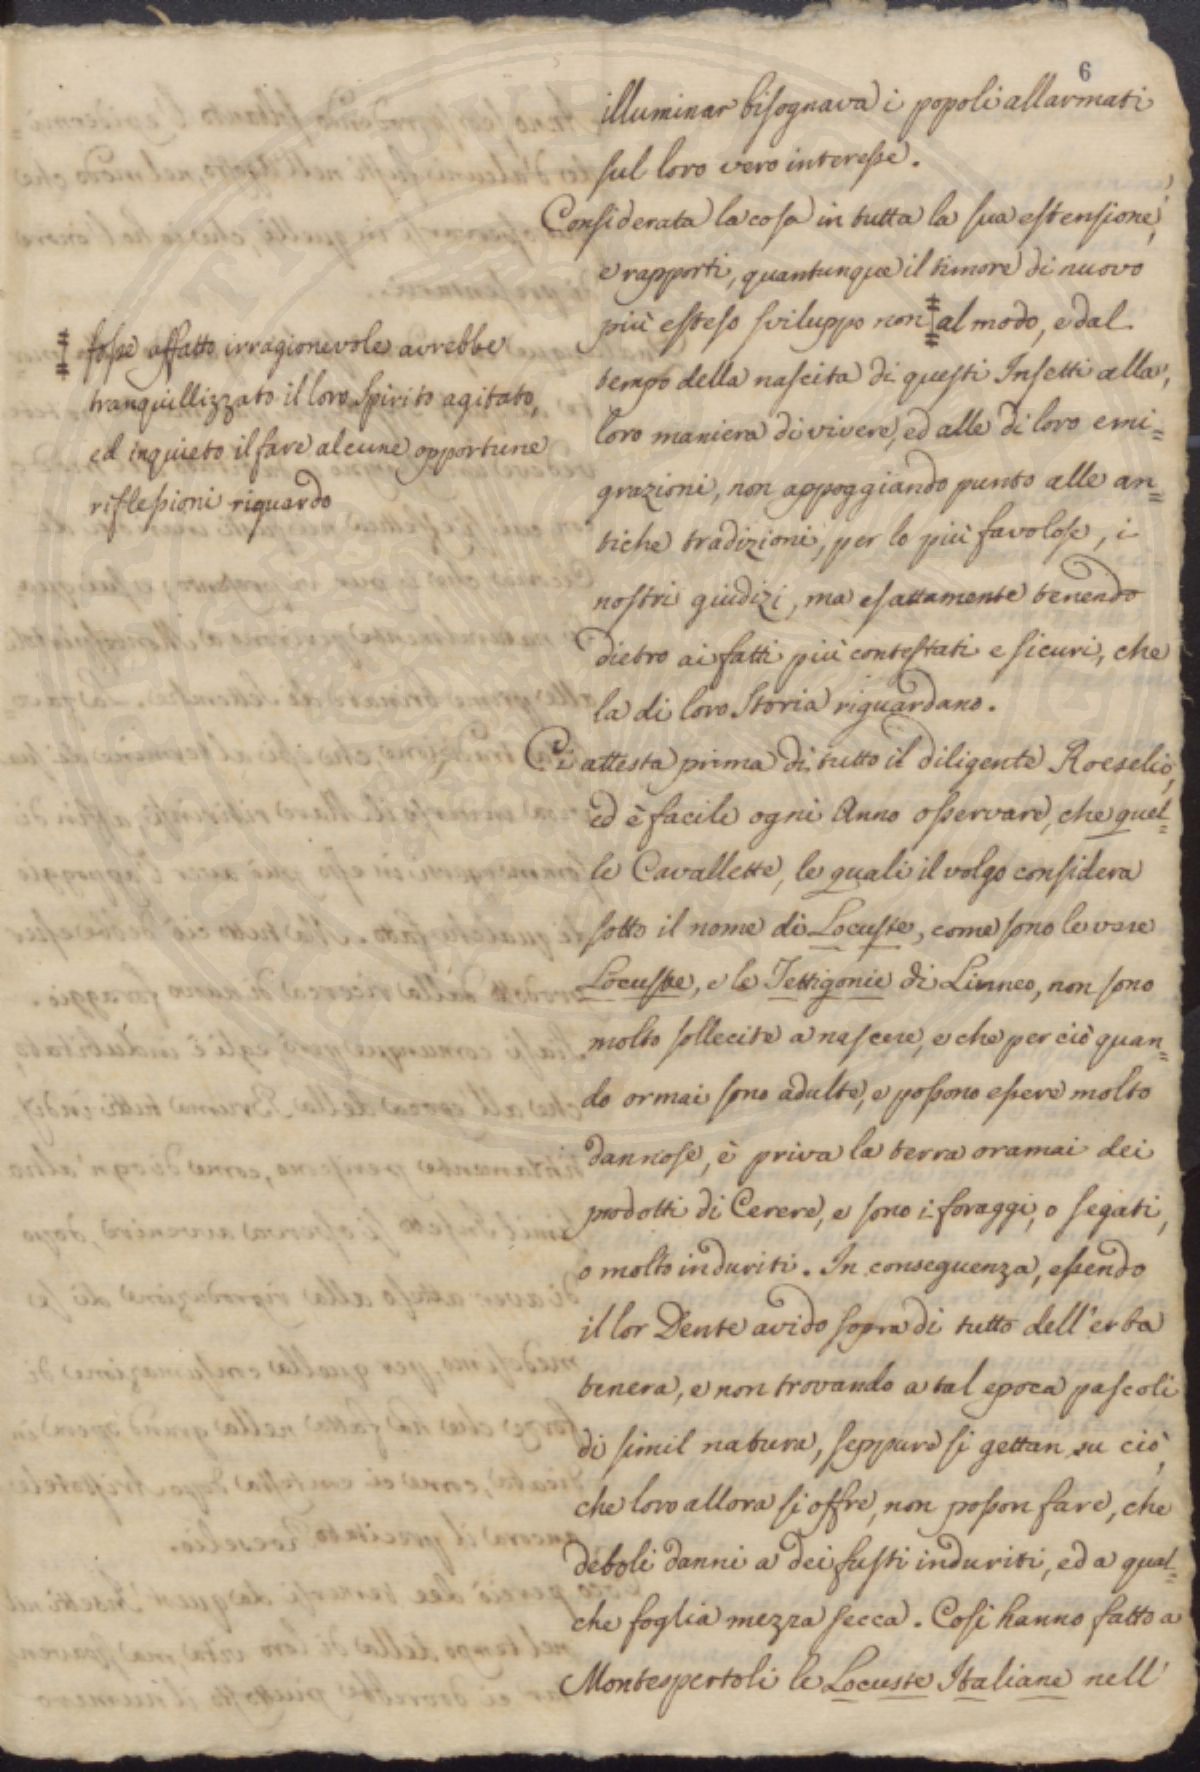 6
illuminar bisognava i popoli allarmati
sul loro vero interesse.
Considerata la cosa in tutta la sua estensione,
e rapporti, quantunque il timore di nuovo
più esteso sviluppo non ‡ al modo, e dal
tempo della nascita di questi Insetti alla,
loro maniera di vivere, ed alle di loro emi=
grazioni, non appoggiando punto alle an=
tiche tradizioni, per lo più favolose, i
nostri giudizi, ma esattamente tenendo
dietro ai fatti più contestati e sicuri, che
la di loro Storia riguardano.
Ci attesta prima di tutto il diligente Roeselio,
ed è facile ogni Anno osservare, che quel=
le Cavallette, le quali il volgo considera
sotto il nome di Locuste, come sono le vere
Locuste, e le Tettigonie di Linneo, non sono
molto sollecite a nascere, e che per ciò quan=
do ormai sono adulte, e possono essere molto
dannose, è priva la terra oramai dei
prodotti di Cerere, e sono i foraggi, o segati,
o molto induriti. In conseguenza, essendo
il lor Dente avido sopra di tutto dell'erba
tenera, e non trovando a tal epoca pascoli
di simil natura, seppure si gettan su ciò,
che loro allora si offre, non posson fare, che
deboli danni a dei fusti induriti, ed a qual=
che foglia mezza secca. Così hanno fatto a
Montespertoli le Locuste Italiane nell'
‡ fosse affatto irragionevole avrebbe
tranquillizzato il loro Spirito agitato,
ed inquieto il fare alcune opportune
riflessioni riguardo